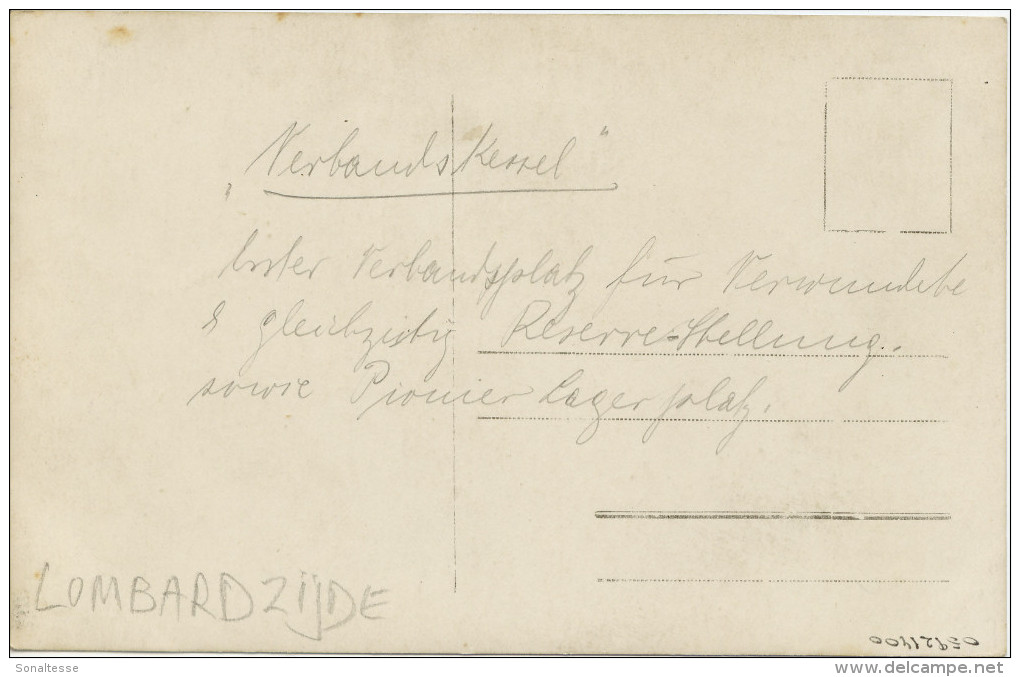 „Verbandskessel“
Erster Verbandsplatz für Verwundete
& gleichzeitig Reserve-Stellung.
sowie Pionier Lagerplatz.
LOMBARDZIJDE
05921400
Sonaltesse
delcampe.net